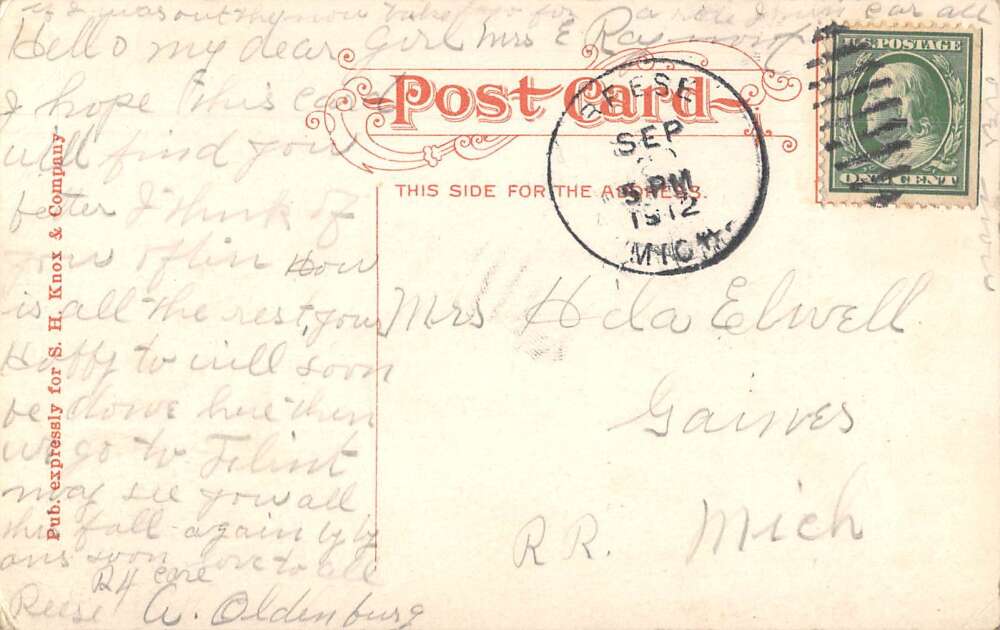 out the now take for a ride I run car all
Hello my dear Girl Mrs E Ray
I hope this card
will find you
better I think of
you often How
is all the rest, your
Hobby to will soon
be done here then
we go to Flint
may see you all
this fall again by by
ans soon love to all
R4 care
Reese A. Oldenburg
Post Card
THIS SIDE FOR THE ADDRESS.
REESE
SEP
5 PM
1912
MICH.
U.S. POSTAGE
ONE CENT
Mrs Hila Elwell
Gaines
RR. Mich
Pub. expressly for S. H. Knox & Company